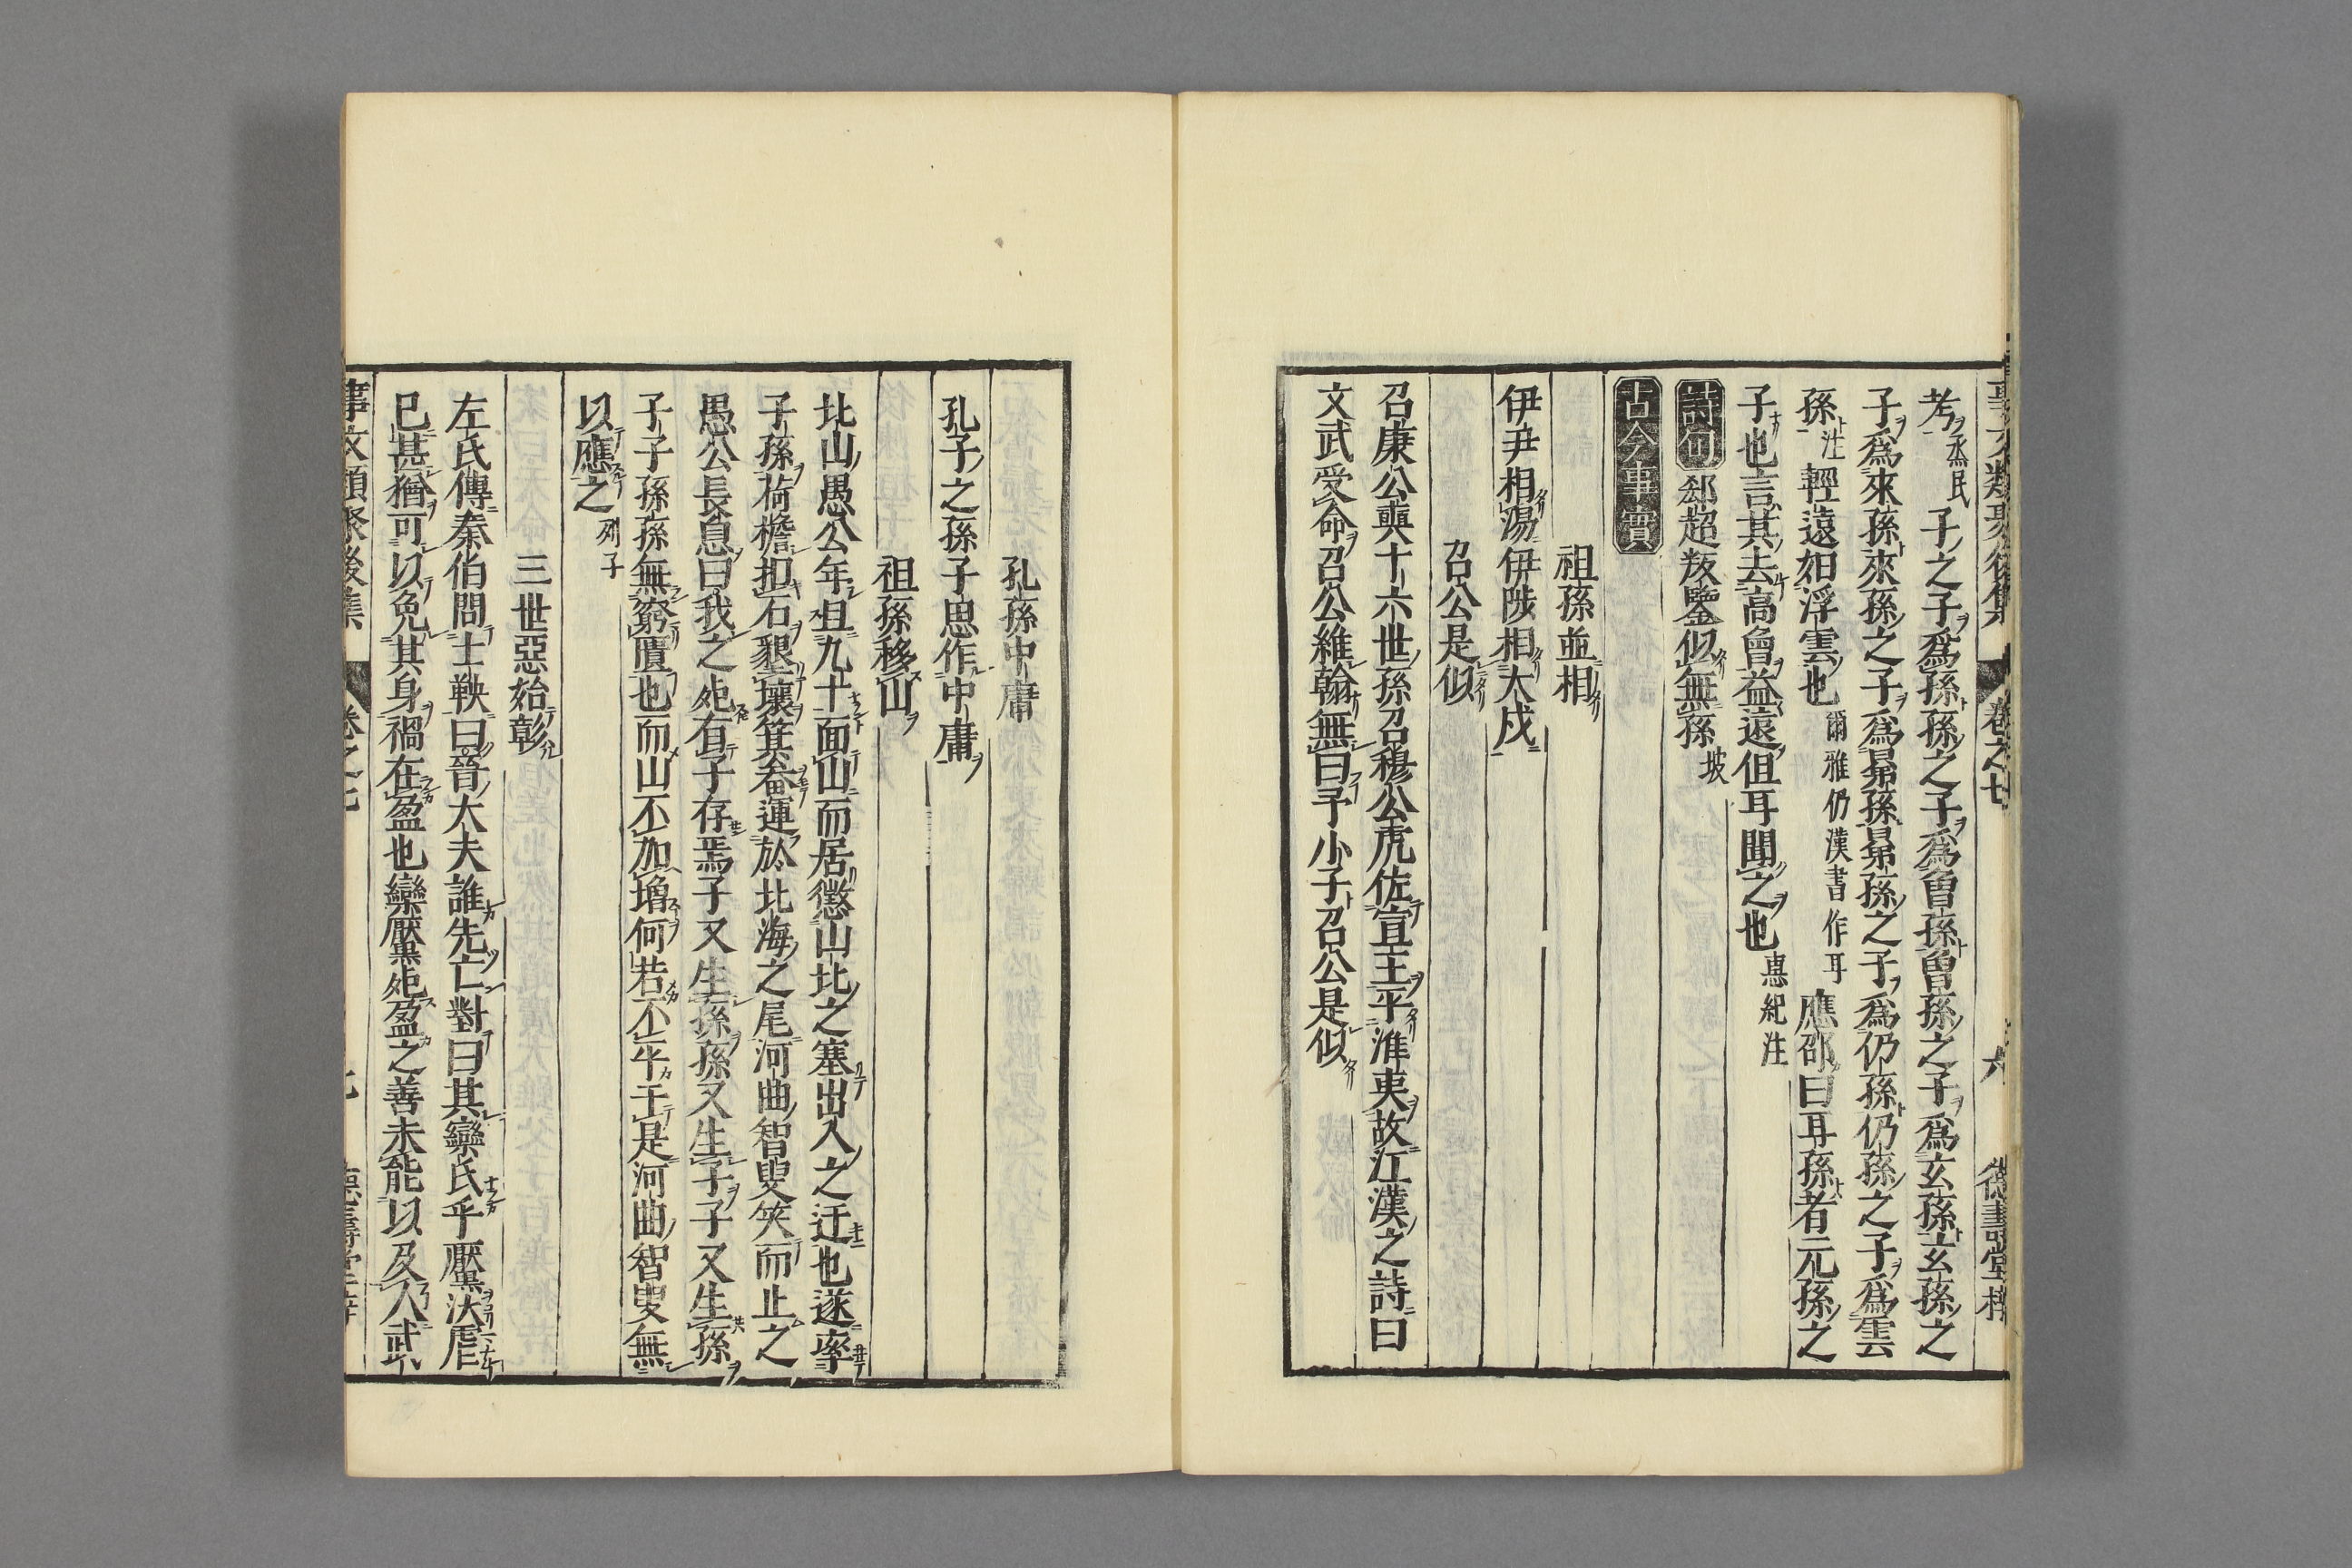 考烝民子之子爲孫孫之子爲曾孫曾孫之子爲玄孫玄孫之
子爲來孫來孫之子爲晜孫晜孫之子爲仍孫仍孫之子爲雲
孫注輕遠如浮雲也爾雅仍漢書作耳應邵曰耳孫者元孫之
子也言其去高曾益遠但耳聞之也惠紀注
詩句郄超叛鑒似無孫坡
古今事實
祖孫並相
伊尹相湯伊陟相大戊
召公是似
召康公奭十六世孫召穆公虎佐宣王平淮夷故江漢之詩曰
文武受命召公維翰無曰予小子召公是似
孔孫中庸
孔子之孫子思作中庸
祖孫移山
北山愚公年且九十面山而居懲山北之塞出入之迂也遂率
子孫荷檐扣石墾壤箕畚運於北海之尾河曲智叟笑而止之
愚公長息曰我之死有子存焉子又生孫孫又生子子又生孫
子子孫孫無窮匱也而山不加增何若不平于是河曲智叟無
以應之列子
三世惡始彰
左氏傳秦伯問士鞅曰晉大夫誰先亡對曰其欒氏乎黶汰虐
已甚猶可以免其身禍在盈也欒黶死盈之善未能以及人武
事文類聚後集 卷之七